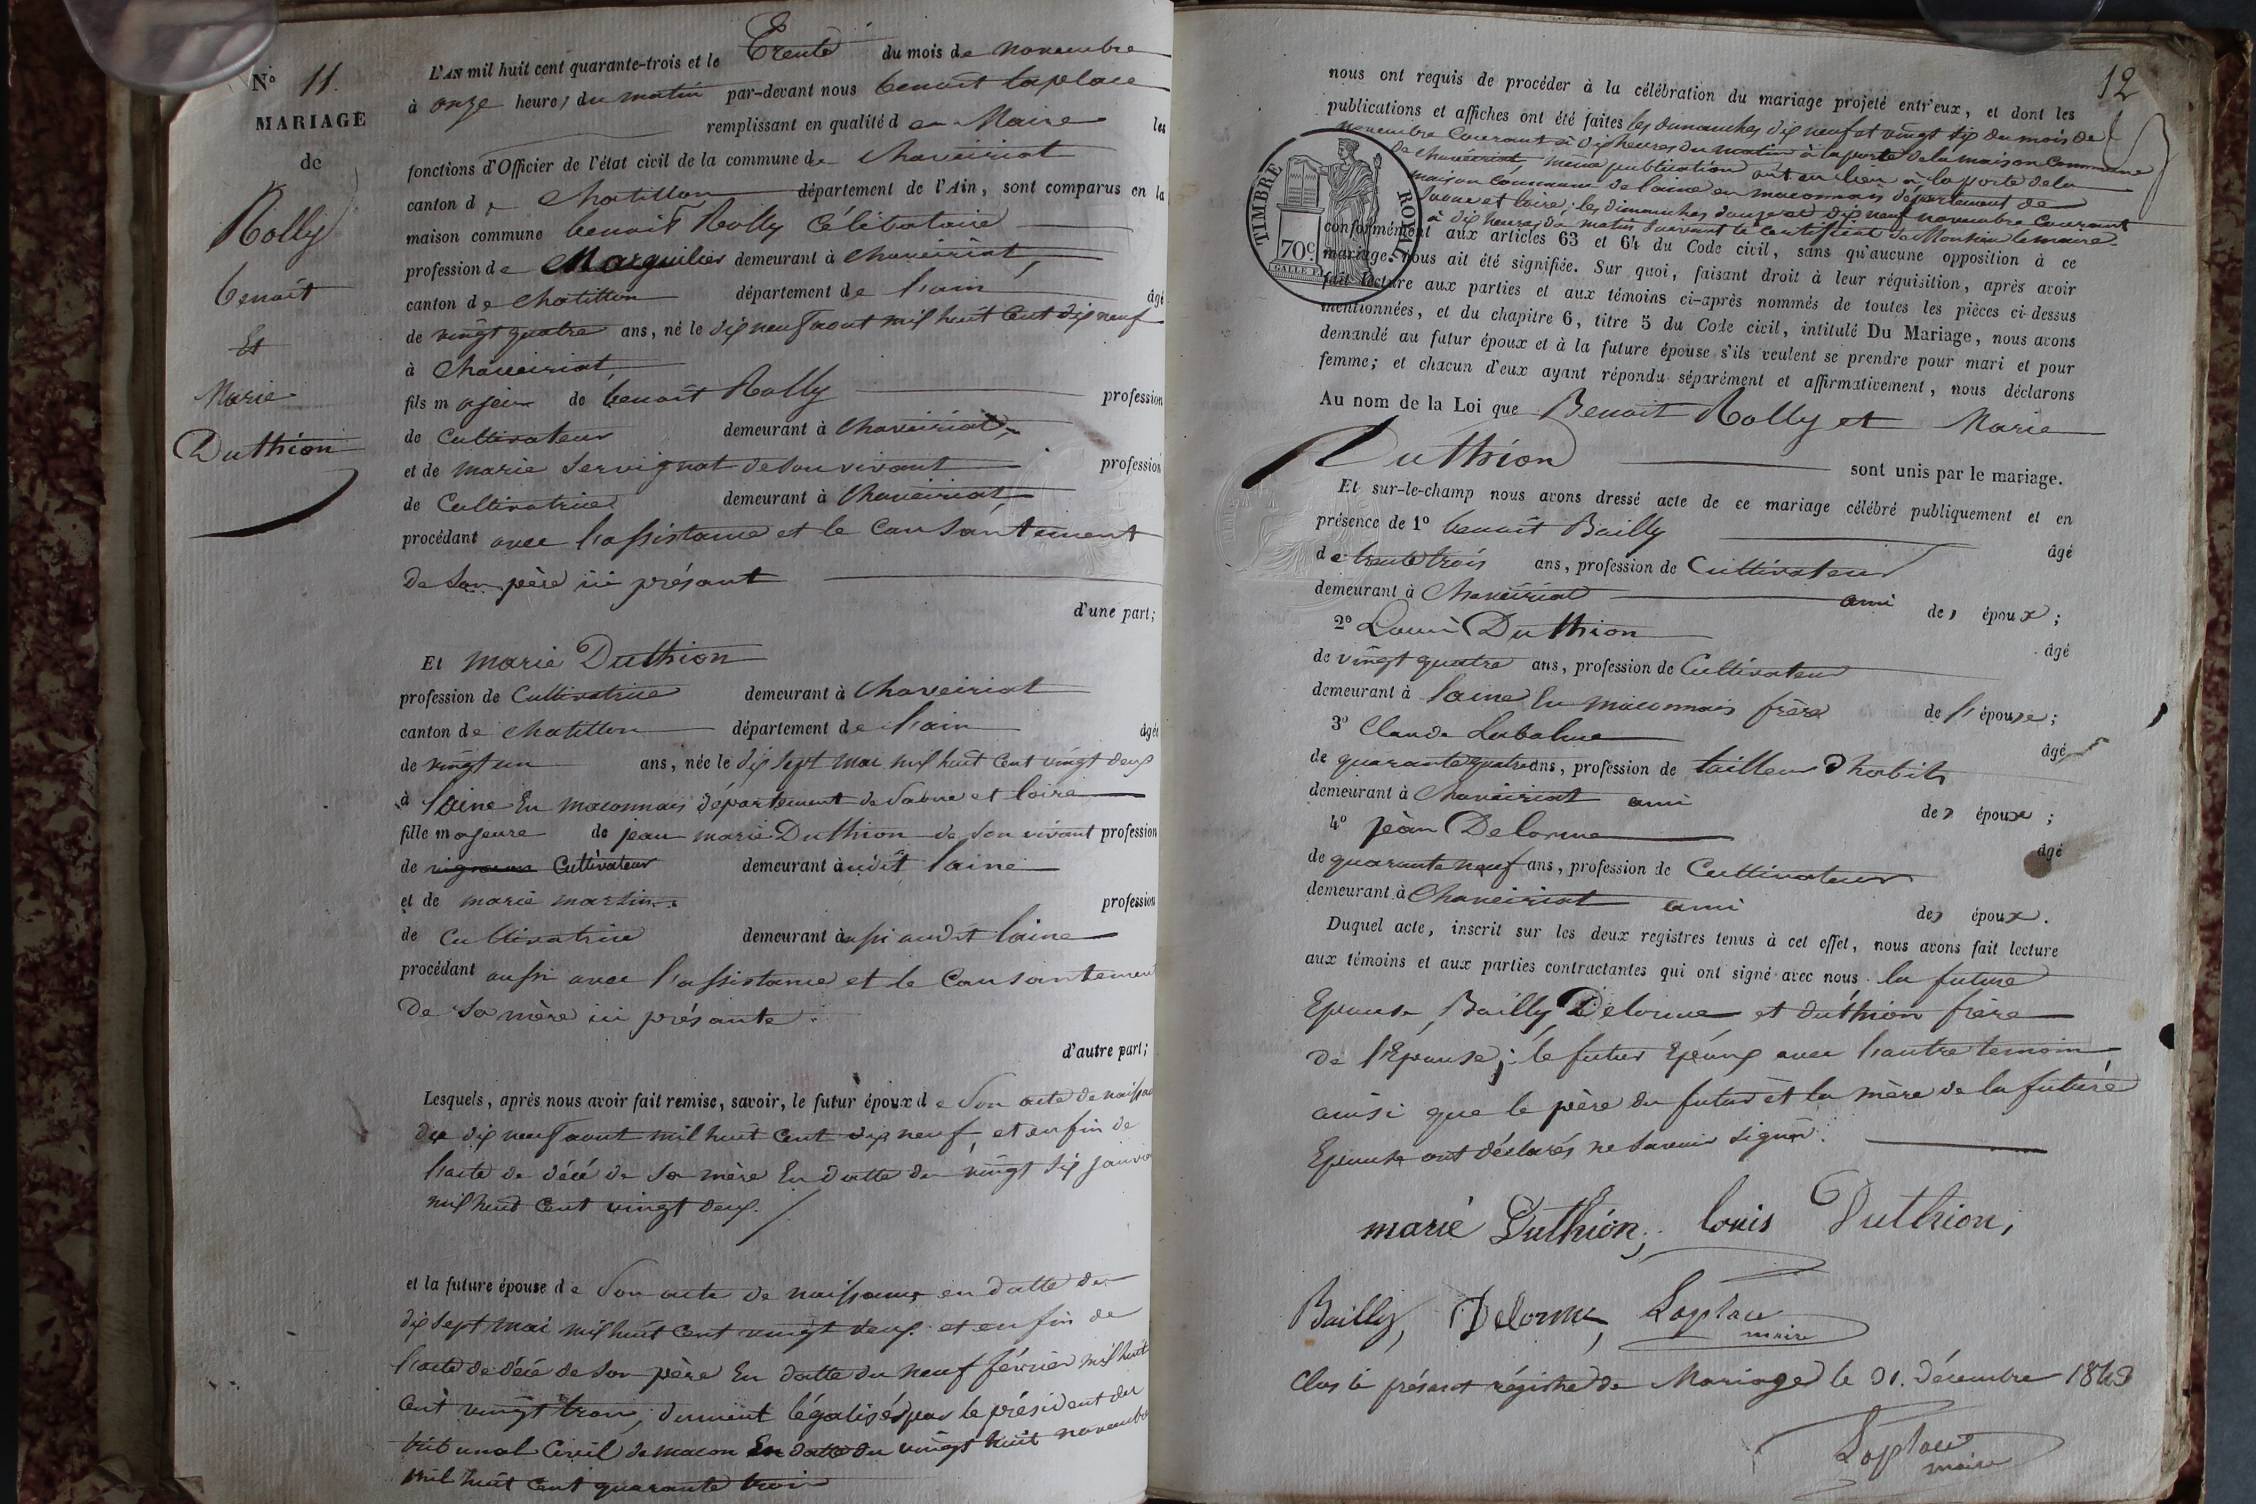 N.° 11.
MARIAGE
de
Rolly
benoit
Et
Marie
Duthion
L'AN mil huit cent quarante-trois et le Trente du mois de novembre
à onze heures du matin par-devant nous benoit laplace
remplissant en qualité de Maire les
fonctions d'Officier de l'état civil de la commune de Chaveiriat
canton de Chatillon département de l'Ain, sont comparus en la
maison commune benoit Rolly Célibataire
profession de Marguilier demeurant à Chaveiriat,
canton de Chatillon département de l'ain âgé
de vingt quatre ans, né le dix neuf aout mil huit Cent dix neuf
à Chaveiriat
fils majeur de benoit Rolly profession
de Cultivateur demeurant à Chaveiriat,
et de marie Servignat de son vivant profession
de Cultivatrice demeurant à Chaveiriat,
procédant avec l'assistance et le Consantement
de son père ici présant
d'une part;
Et marie Duthion
profession de Cultivatrice demeurant à Chaveiriat
canton de Chatillon département de l'ain âgée
de vingt un ans, née le dix sept mai mil huit Cent vingt deux
à laine En maconnais département de Saone et loire
fille majeure de jean marie Duthion de son vivant profession
de vigneron Cultivateur demeurant à udit laine
et de marie martin profession
de Cultivatrice demeurant à ussi audit laine
procédant aussi avec l'assistance et le Consantement
De Sa mère ici présante.
d'autre part;
Lesquels, après nous avoir fait remise, savoir, le futur époux de Son acte de naissance
du dix neuf aout mil huit Cent dix neuf, et enfin de
l'acte de décé de Sa mère En datte du vingt six janvier
mil huit Cent vingt deux.
et la future épouse de Son acte de naissance en datte du
dix sept mai mil huit Cent vingt deux et enfin de
l'acte de décé de Son père En datte du neuf février mil huit
Cent vingt trois, dument légalisés par le président du
tribunal Civil de macon En datte du vingt huit novembre
mil huit Cent quarante trois
12
nous ont requis de procéder à la célébration du mariage projeté entr'eux, et dont les
publications et affiches ont été faites les dimanches dix neuf et vingt six du mois de
novembre Courant à dix heures du matin à la porte de la maison Commune
de Chavéiriat, meme publication ont eu lieu à la porte de la
maison Commune de laine en maconnais département de
Saone et loire, les dimanches douze et dix neuf novembre Courant
à dix heures du matin suivant le certificat de Monsieur le maire
conformément aux articles 63 et 64 du Code civil, sans qu'aucune opposition à ce
mariage nous ait été signifiée. Sur quoi, faisant droit à leur réquisition, après avoir
fait lecture aux parties et aux témoins ci-après nommés de toutes les pièces ci-dessus
mentionnées, et du chapitre 6, titre 5 du Code civil, intitulé Du Mariage, nous avons
demandé au futur époux et à la future épouse s'ils veulent se prendre pour mari et pour
femme; et chacun d'eux ayant répondu séparément et affirmativement, nous déclarons
TIMBRE ROYAL
70c.
Au nom de la Loi que Benoit Rolly et Marie
Duthion sont unis par le mariage.
Et sur-le-champ nous avons dressé acte de ce mariage célébré publiquement et en
présence de 1° benoit Bailly âgé
de trente trois ans, profession de Cultivateur
demeurant à Chaveiriat ami des époux;
2° Louis Duthion âgé
de vingt quatre ans, profession de Cultivateur
demeurant à laine En maconnais frère de l'épouse;
3° Claude Labalme âgé
de quarante quatre ans, profession de tailleur d'habits
demeurant à Chaveiriat ami des époux;
4° jean Delorme âgé
de quarante neuf ans, profession de Cultivateur
demeurant à Chaveiriat ami des époux.
Duquel acte, inscrit sur les deux registres tenus à cet effet, nous avons fait lecture
aux témoins et aux parties contractantes qui ont signé avec nous la future
Epouse, Bailly Delorme et duthion frère
de l'Epouse; le futur Epoux avec l'autre temoin
ainsi que le père du futur et la mère de la future
Epouse ont déclarés ne Savoir Signer.
marie Duthion, louis Duthion,
Bailly, Delorme, Laplace
maire
Clos le présent régistre de Mariage le 31. décembre 1843
Laplace
maire